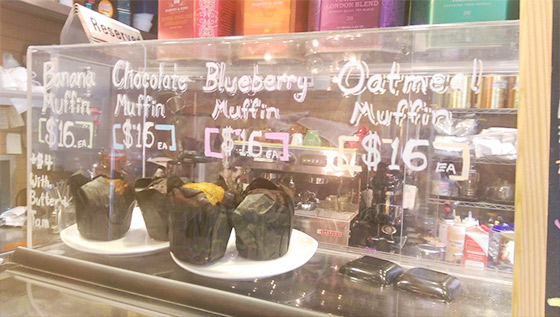 Reserved
LONDON
BLEND
Banana
Muffin
$16 EA
+$4
With
Butter &
Jam
Chocolate
Muffin
$16 EA
Blueberry
Muffin
$16 EA
Oatmeal
Muffin
$16 EA